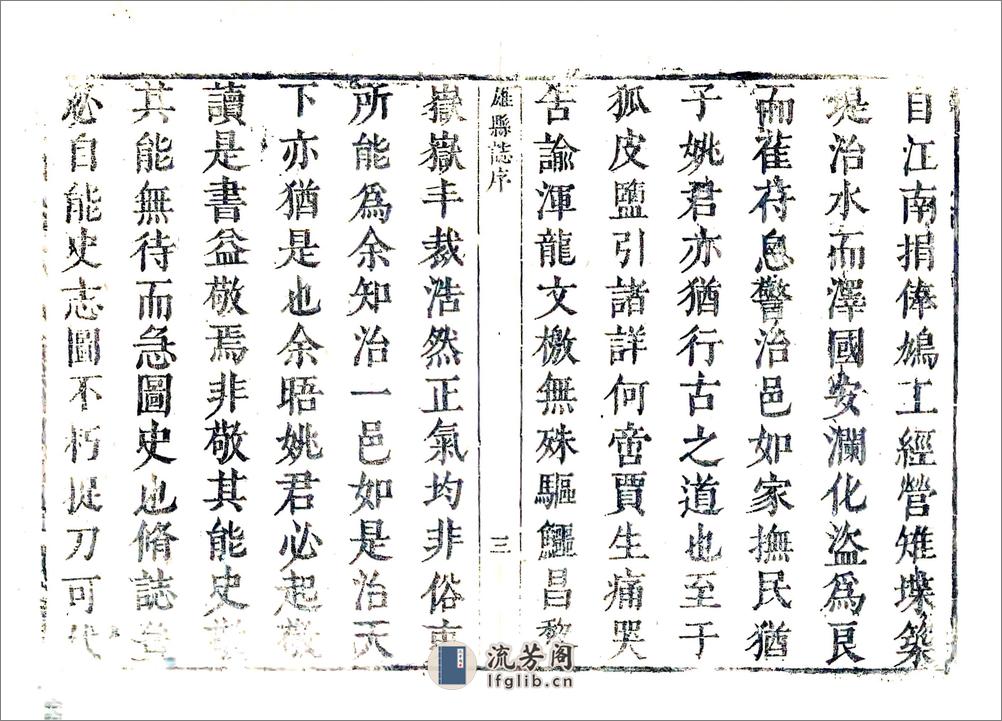 自江南捐俸鳩工經營雉堞築
堤治水而澤國安瀾化盜爲良
而萑苻息警治邑如家撫民猶
子姚君亦猶行古之道也至于
狐皮鹽引諸詳何啻賈生痛哭
告諭渾龍文檄無殊驅鱷昌黎
雄縣誌序
三
嶽嶽丰裁浩然正氣均非俗吏
所能爲余知治一邑如是治天
下亦猶是也余晤姚君必起敬
讀是書益敬焉非敬其能史
其能無待而急圖史也脩誌
必自能史志圖不朽捉刀可代
流芳阁
lfglib.cn